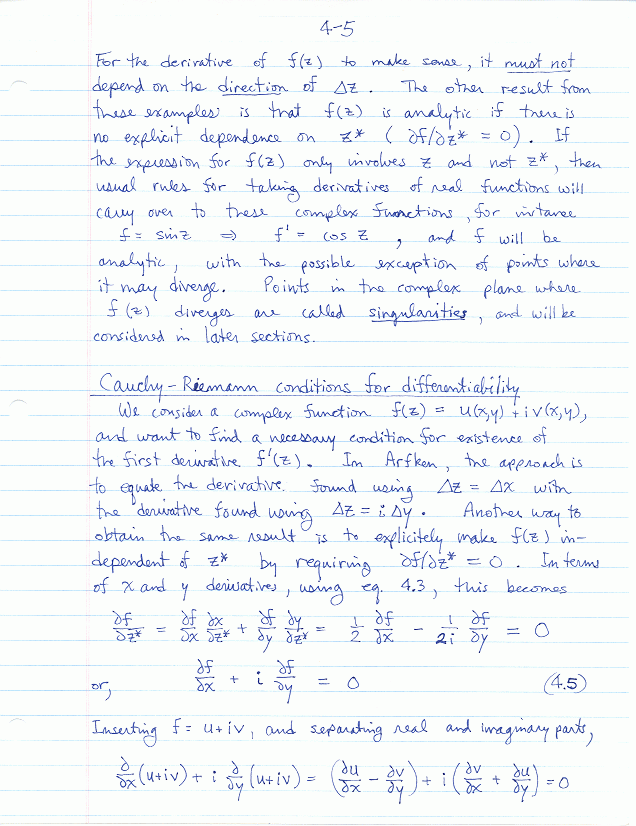 4-5
For the derivative of f(z) to make sense, it must not
depend on the direction of Δz. The other result from
these examples is that f(z) is analytic if there is
no explicit dependence on z* ( ∂f/∂z* = 0). If
the expression for f(z) only involves z and not z*, then
usual rules for taking derivatives of real functions will
carry over to these complex functions, for instance
f = sin z ⇒ f' = cos z , and f will be
analytic, with the possible exception of points where
it may diverge. Points in the complex plane where
f(z) diverges are called singularities, and will be
considered in later sections.
Cauchy-Riemann conditions for differentiability
We consider a complex function f(z) = u(x,y) + i v(x,y),
and want to find a necessary condition for existence of
the first derivative f'(z). In Arfken, the approach is
to equate the derivative found using Δz = Δx with
the derivative found using Δz = i Δy. Another way to
obtain the same result is to explicitely make f(z) in-
dependent of z* by requiring ∂f/∂z* = 0. In terms
of x and y derivatives, using eq. 4.3, this becomes
∂f/∂z* = ∂f/∂x ∂x/∂z* + ∂f/∂y ∂y/∂z* = 1/2 ∂f/∂x - 1/2i ∂f/∂y = 0
or, ∂f/∂x + i ∂f/∂y = 0 (4.5)
Inserting f = u+iv, and separating real and imaginary parts,
∂/∂x (u+iv) + i ∂/∂y (u+iv) = (∂u/∂x - ∂v/∂y) + i (∂v/∂x + ∂u/∂y) = 0